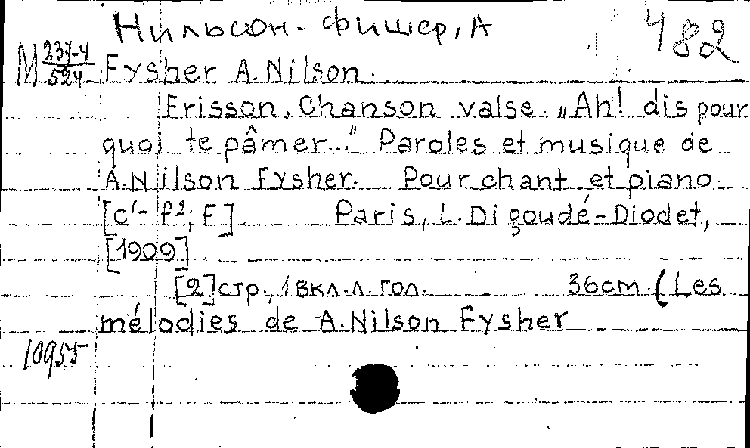 Нильсон-Фишер, А
482
M 234-4/524
Fysher A. Nilson.
Frisson. Chanson valse. „Ah! dis pour
quoi te pâmer..." Paroles et musique de
A. Nilson Fysher. Pour chant et piano
[c¹-f²; F]. Paris, L. Digoudé-Diodet,
[1909]
[2] стр., 1 вкл. л. гол. 36cm (Les
mélodies de A. Nilson Fysher
10955